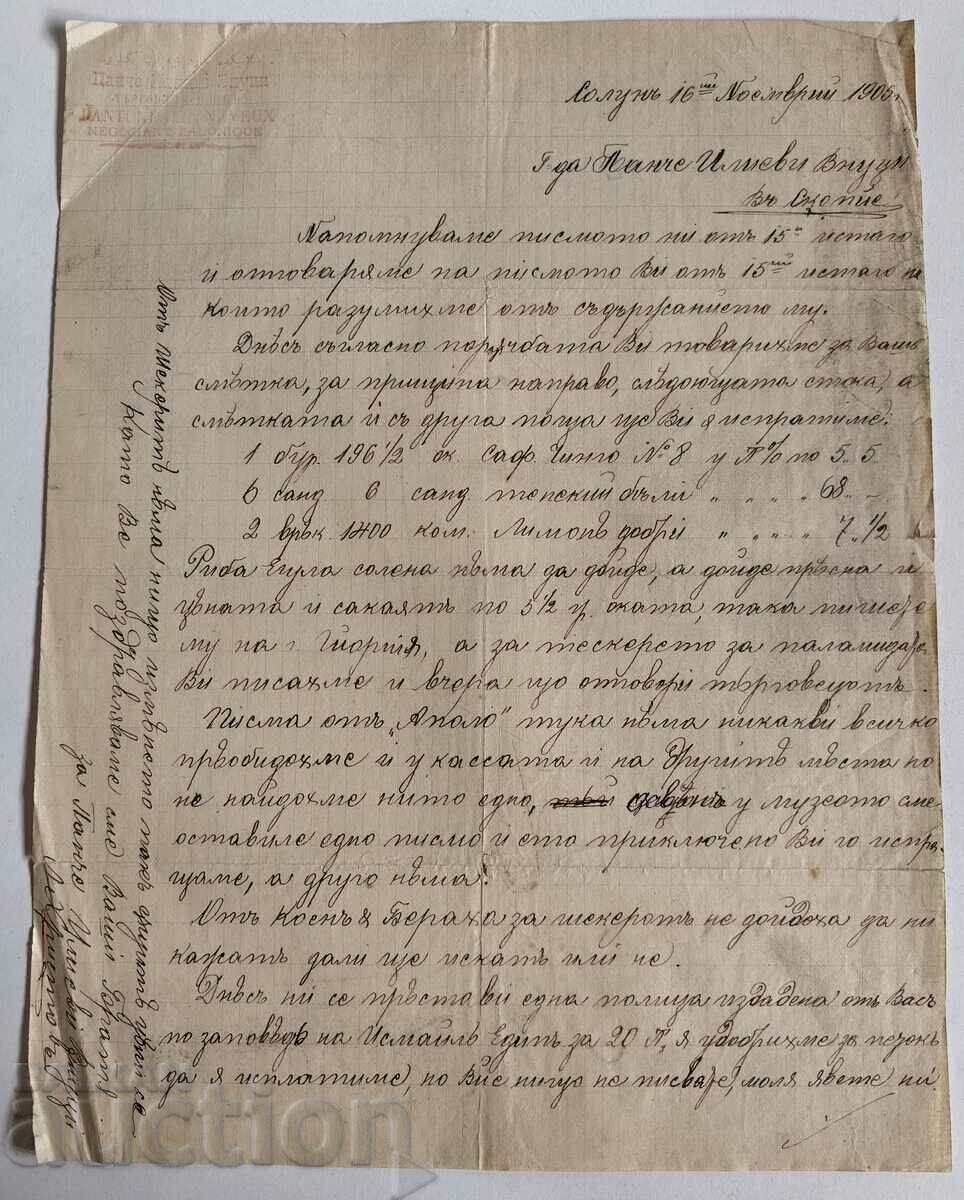 Панче
PANTCHE NEVEUX
NEGOCIANTS SALONIQUE
Солунъ 16ий Ноемврий 1905
Г-да Панче Илиеви Внуци
Въ Скопйе
Напомнуваме писмото ни отъ 15о истаго
и отговаряме на писмото Ви отъ 15ий истаго на
което разумихме отъ съдържанието му.
Днѣсъ съгласно порѫчбата Ви товарихме за Ваша
смѣтка, за прищина направо, слѣдующата стока, а
смѣтката й съ друга поща ще Ви я испратиме:
1 бур. 196 1/2 ок. Саф. Гинго № 8 у П% по 5.. 5
6 санд 6 санд тепский бѣли „ „ „ „ 68.. –
2 врѣк. 1400 ком. Лимонъ добрй „ „ „ „ 7.. 1/2
Риба Егула солена нѣма да дойде, а дойде прѣсна и
цѣната й сакаятъ по 5 1/2 гр. оката, така пишете
му на г. Гиоргия, а за тескерето за паламидата
Ви писахме и вчера що отговори търговецотъ.
Писма отъ „Аполо" тука нѣма никакви всичко
прѣобидохме и у кассата и на другитѣ мѣста но
не найдохме нито едно, у музеото сме
оставиле едно писмо и ето приключено Ви го испра-
щаме, а друго нѣма!
Отъ Коенъ & Бераха за шекеротъ не дойдоха да ни
кажатъ дали ще искатъ или не.
Днѣсъ ни се прѣстави една полица издадена отъ Васъ
по заповѣдъ на Исмаилъ Едипъ за 20 П, я удобрихме за петокъ
да я исплатиме, но Вие нищо не писвате, моля явете ни
Отъ Шекеритѣ нѣма нищо цѣни се
Като Ве поздравляваме сме Ваши Братя
за Панче Илиеви Внуци
auction